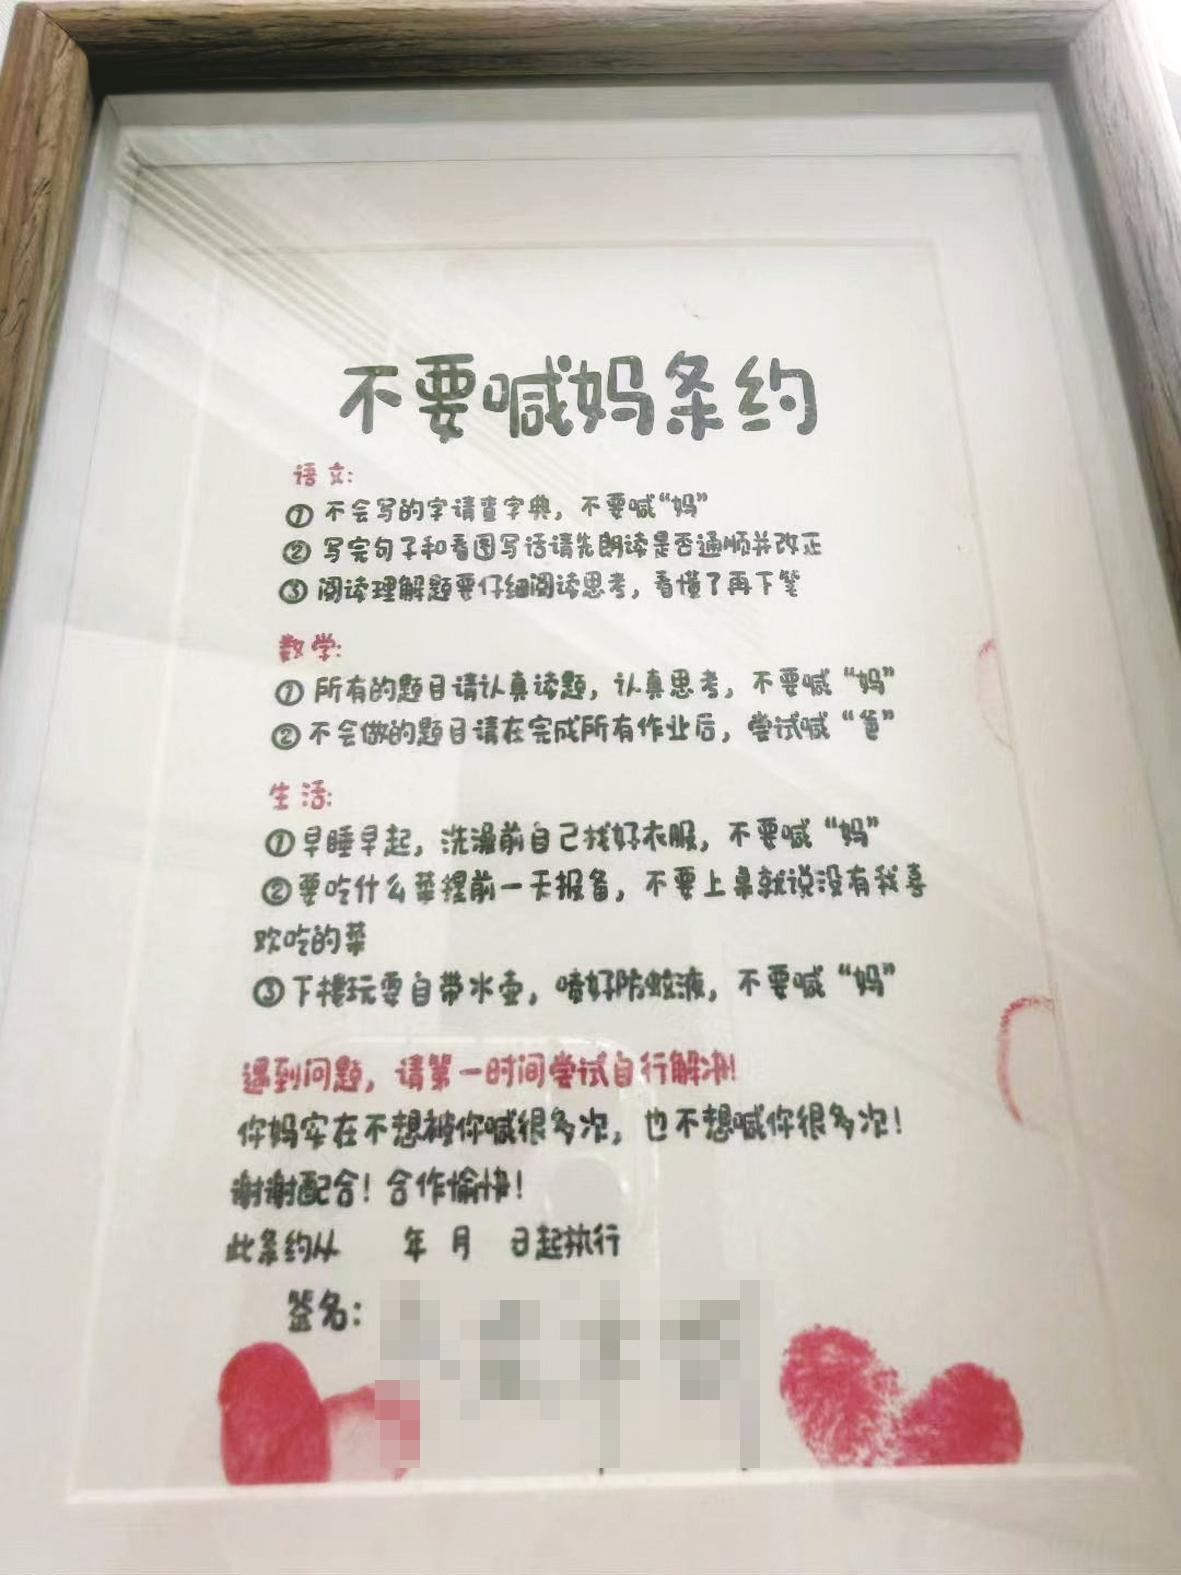 不要喊妈条约
语文:
① 不会写的字请查字典，不要喊“妈”
② 写完句子和看图写话请先朗读是否通顺并改正
③ 阅读理解题要仔细阅读思考，看懂了再下笔
数学:
① 所有的题目请认真读题，认真思考，不要喊“妈”
② 不会做的题目请在完成所有作业后，尝试喊“爸”
生活:
①早睡早起，洗澡前自己找好衣服，不要喊“妈”
②要吃什么菜提前一天报备，不要上桌就说没有我喜
欢吃的菜
③下楼玩耍自带水壶，喷好防蚊液，不要喊“妈”
遇到问题，请第一时间尝试自行解决!
你妈实在不想被你喊很多次，也不想喊你很多次!
谢谢配合! 合作愉快!
此条约从 年 月 日起执行
签名: